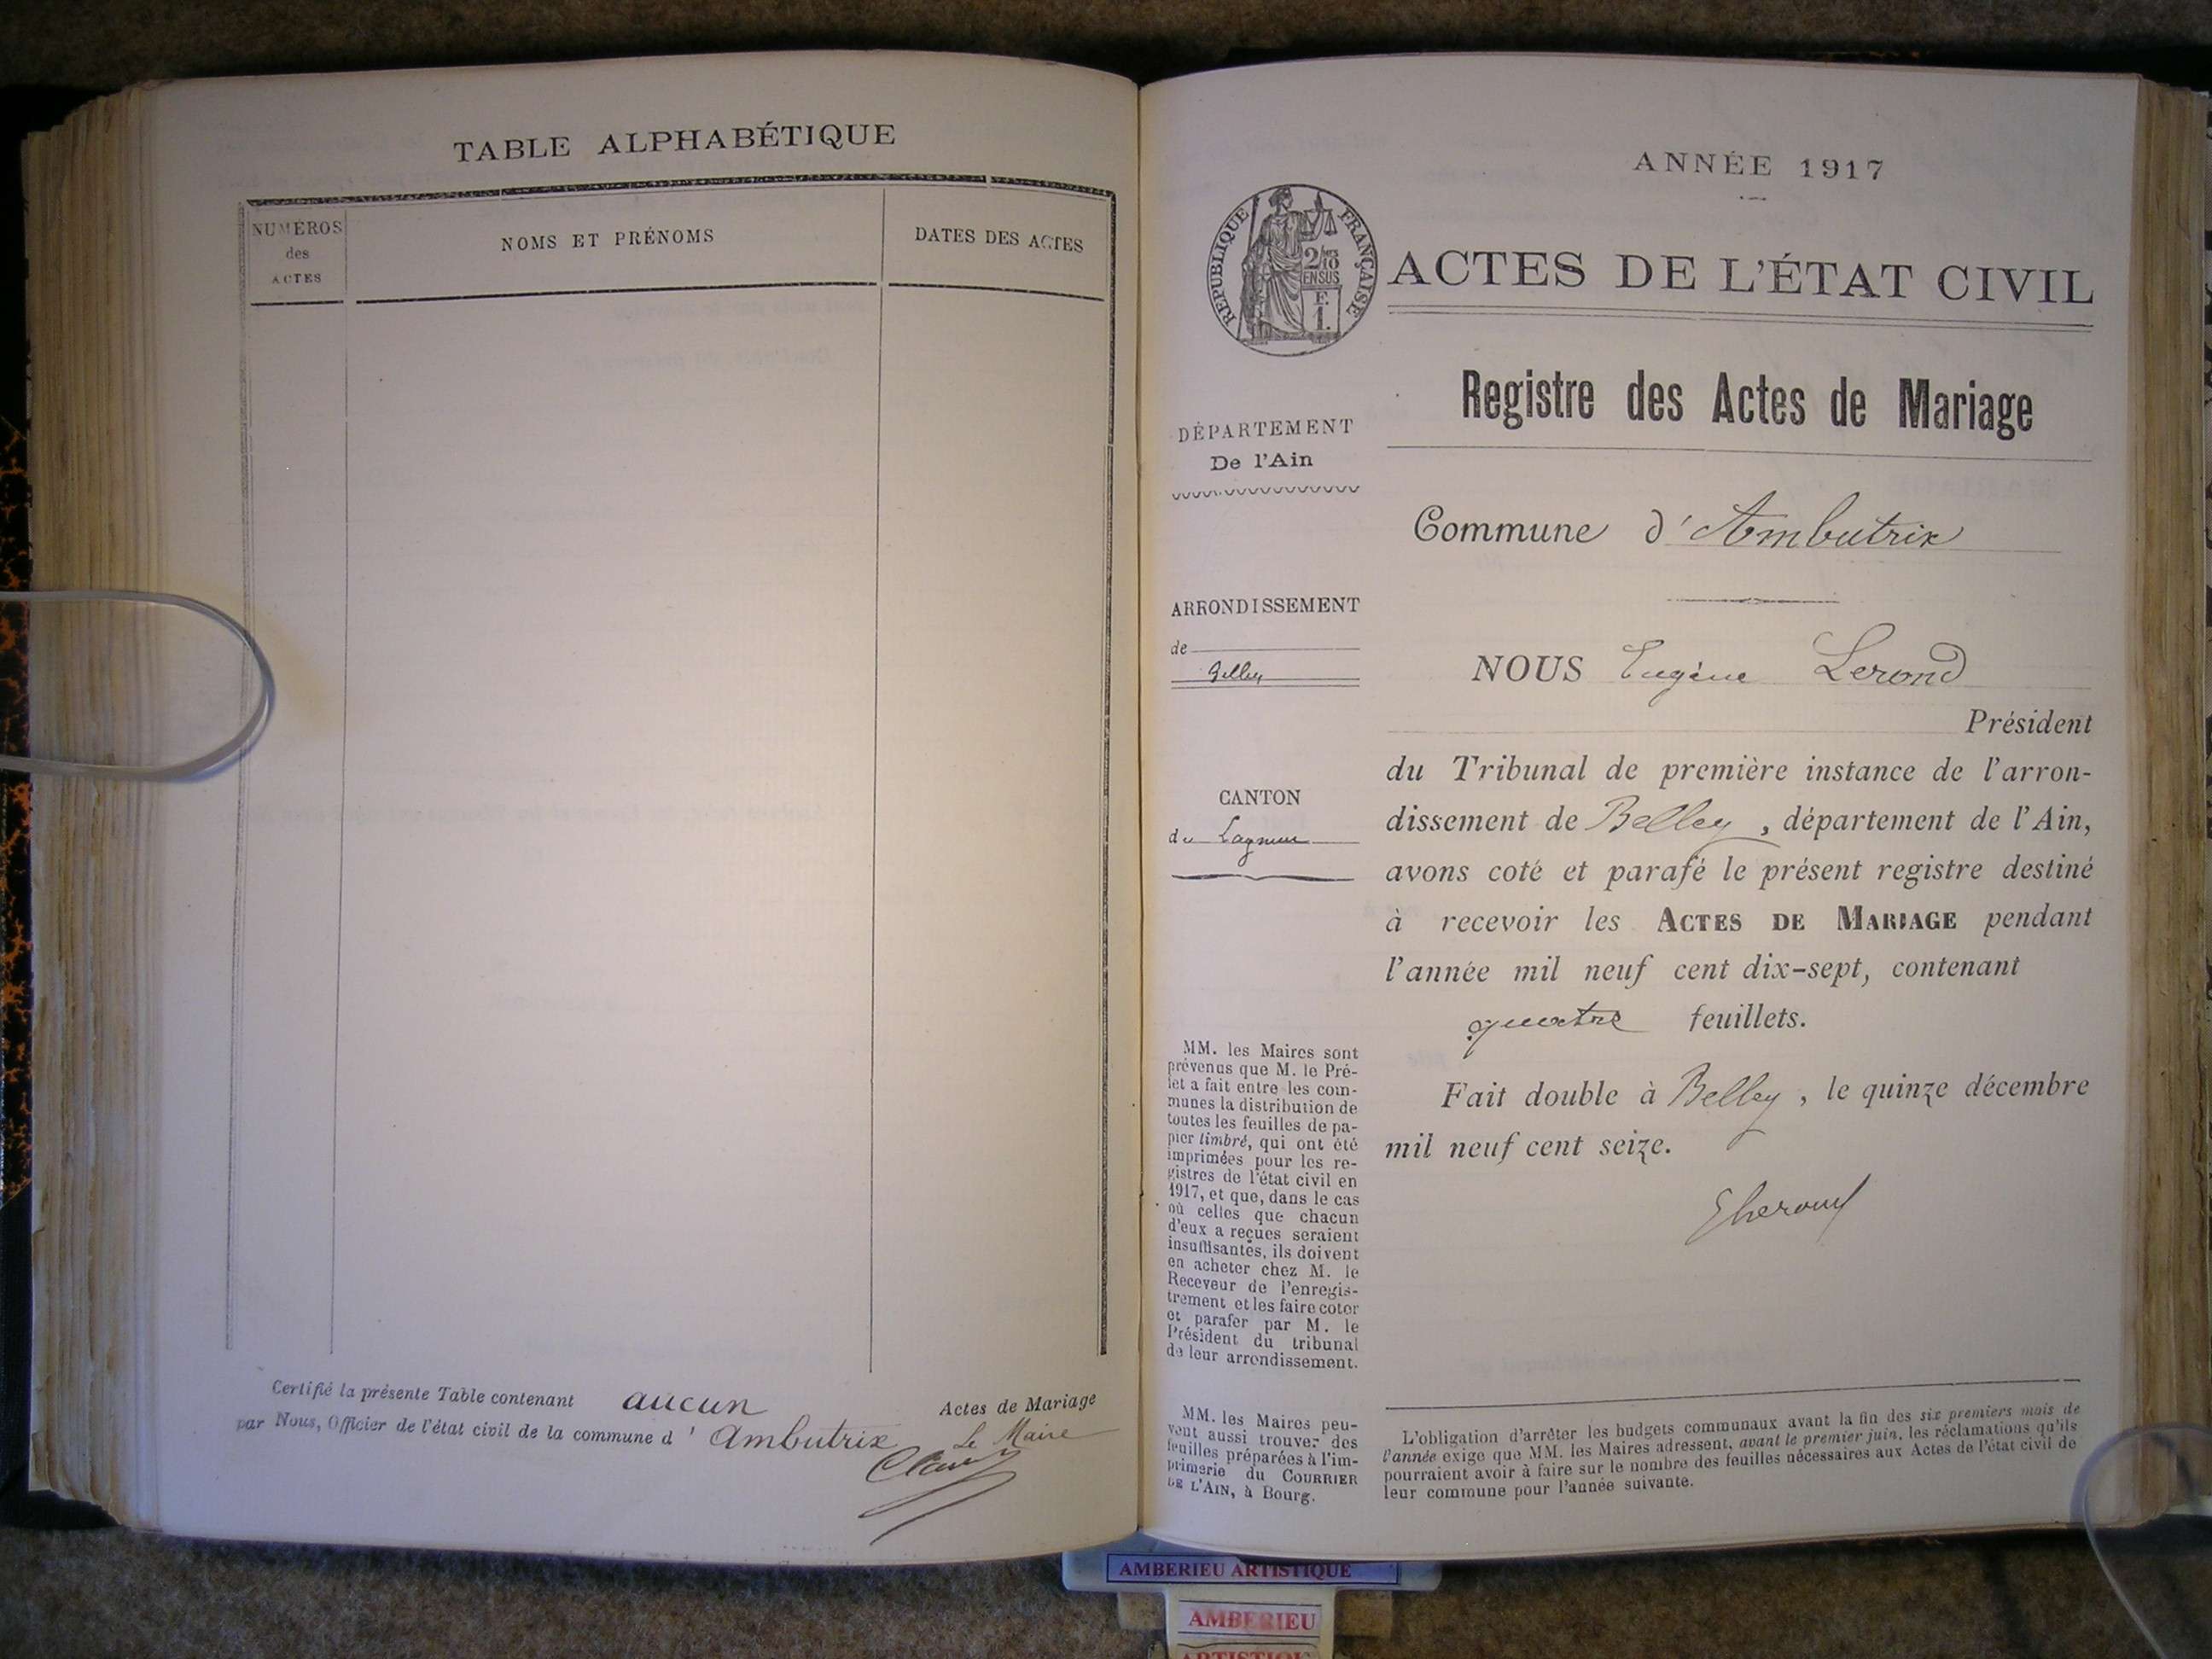 TABLE ALPHABÉTIQUE
NUMÉROS
des
ACTES
NOMS ET PRÉNOMS
DATES DES ACTES
Certifié la présente Table contenant aucun Actes de Mariage
par Nous, Officier de l'état civil de la commune d' Ambutrix
Le Maire
ANNÉE 1917
RÉPUBLIQUE FRANÇAISE
2/10
EN SUS
F.
1.
ACTES DE L'ÉTAT CIVIL
Registre des Actes de Mariage
DÉPARTEMENT
De l'Ain
Commune d'Ambutrix
ARRONDISSEMENT
de
Belley
NOUS Eugène Lerond
Président
du Tribunal de première instance de l'arron-
dissement de Belley, département de l'Ain,
avons coté et parafé le présent registre destiné
à recevoir les ACTES DE MARIAGE pendant
l'année mil neuf cent dix-sept, contenant
quatre feuillets.
Fait double à Belley, le quinze décembre
mil neuf cent seize.
CANTON
de Lagnieu
MM. les Maires sont
prévenus que M. le Pré-
fet a fait entre les com-
munes la distribution de
toutes les feuilles de pa-
pier timbré, qui ont été
imprimées pour les re-
gistres de l'état civil en
1917, et que, dans le cas
où celles que chacun
d'eux a reçues seraient
insuffisantes, ils doivent
en acheter chez M. le
Receveur de l'enregis-
trement et les faire coter
et parafer par M. le
Président du tribunal
de leur arrondissement.
MM. les Maires peu-
vent aussi trouver des
feuilles préparées à l'im-
primerie du COURRIER
DE L'AIN, à Bourg.
L'obligation d'arrêter les budgets communaux avant la fin des six premiers mois de
l'année exige que MM. les Maires adressent, avant le premier juin, les réclamations qu'ils
pourraient avoir à faire sur le nombre des feuilles nécessaires aux Actes de l'état civil de
leur commune pour l'année suivante.
AMBERIEU ARTISTIQUE
AMBERIEU
ARTISTIQUE